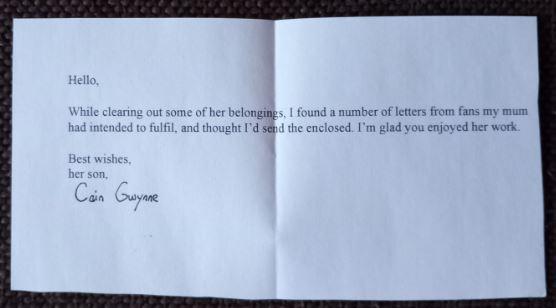 Hello,
While clearing out some of her belongings, I found a number of letters from fans my mum
had intended to fulfil, and thought I'd send the enclosed. I'm glad you enjoyed her work.
Best wishes,
her son,
Cain Gwynne